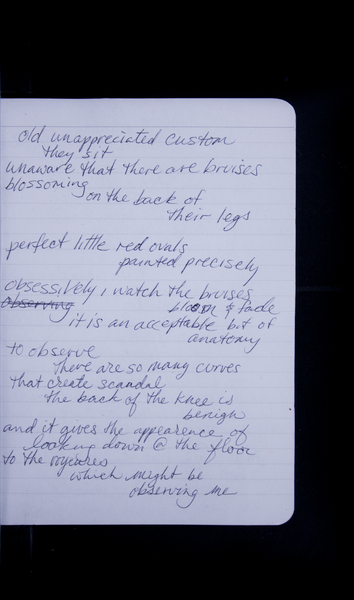 old unappreciated custom
they sit
unaware that there are bruises
blossoming
on the back of
their legs
perfect little red ovals
painted precisely
obsessively, I watch the bruises
observing bloom & fade
it is an acceptable bit of
anatomy
to observe
there are so many curves
that create scandal
the back of the knee is
benign
and it gives the appearence of
looking down @ the floor
to the voyeures
which might be
observing me